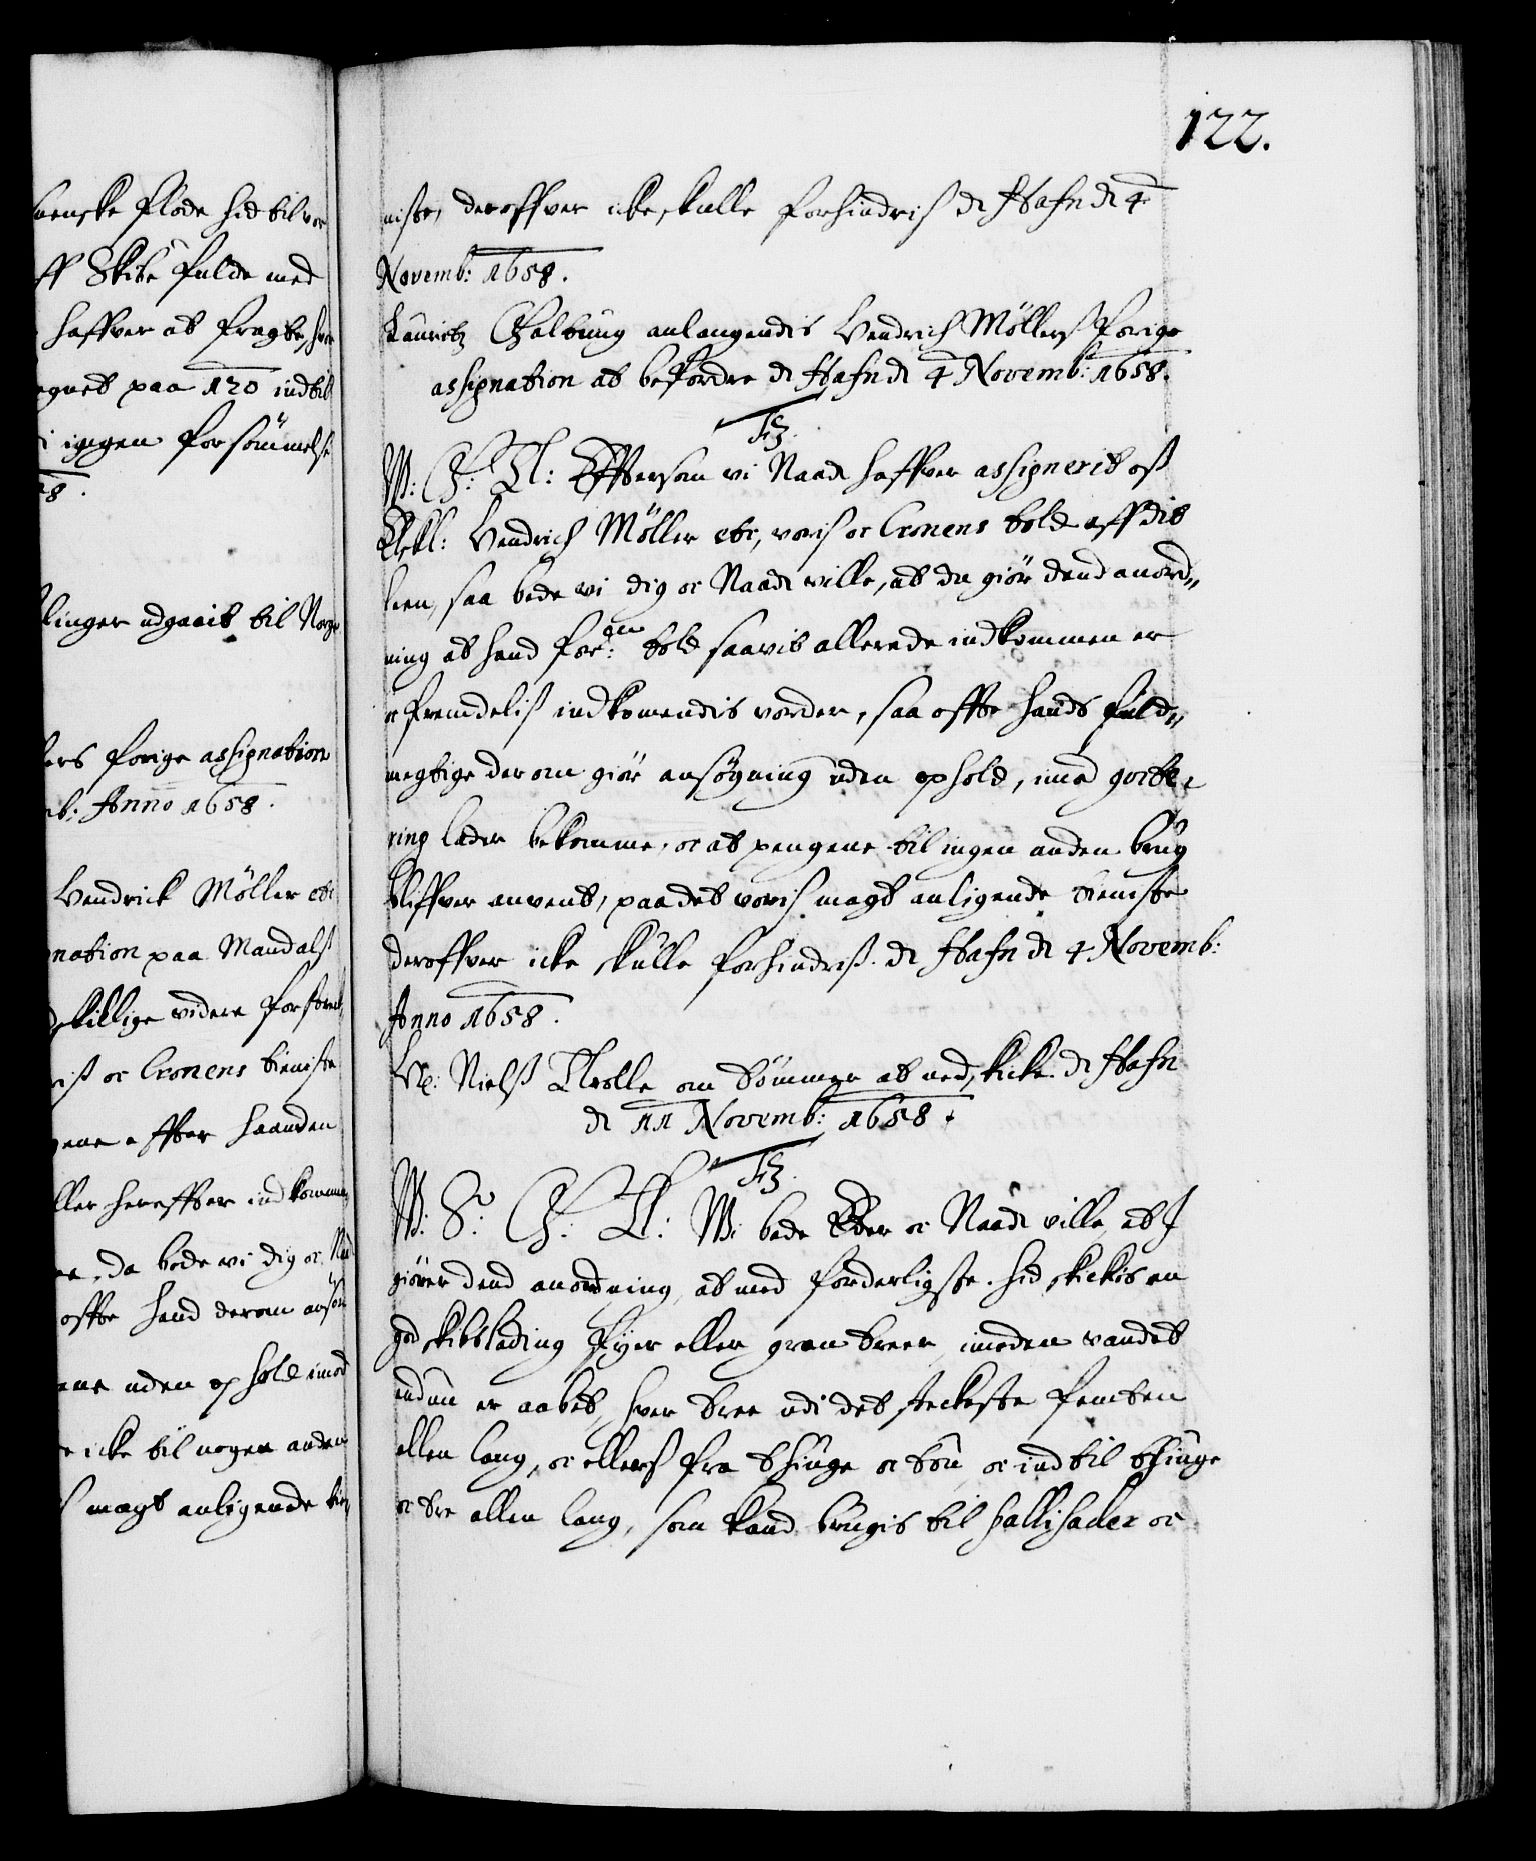 uenske Flode hid til vor
ff Skibe fulde med
haffver at fragte, hvor
egnet paa 120 indtil
i ingen forsömmelse
58.
linger udgaait til Norge
ers forige assignation
mb: Anno 1658.
Hendrick Möller etc
nation paa Mandals
skillige videre forstrect,
ris oc Cronens tieniste
gene effter haanden
ller hereffter indkomme,
re, da bede vi dig oc Naad
offte hand derom ansö
ene uden ophold imod
e icke til nogen anden
s magt anligende tie,
122.
niste, deroffver icke skulle forhindris de Hafn d 4
Novemb: 1658.
Lauritz Galtung anlangendis Hendrich Möllers forige
assignation at befordre de Hafn d 4 Novemb: 1658.
F3.
W: G: T: Effterson vi Naadt haffver assignerit oss
Elskl: Hendrich Möller etc, voris oc Cronens told aff dit
lien, saa bede vi dig oc Naadt ville, at du giör dend anord,,
ning at hand for:ne told saavit allerede indkommen er
oc fremdelis indkomendis vorder, saa offte hands fuld,,
megtige derom giör ansögning uden ophold, imod qvite,
ring lader bekomme, oc at pengene til ingen anden brug
bliffver anvent, paa det voris magt anligende tieniste
deroffver icke skulle forhindris. de Hafn d 4 Novemb:
Anno 1658.
H: Niels Trolle om tömmer at nedskicke. de Hafn
d 11 Novemb: 1658.
F3.
W: S: G: T: Wi bede Eder oc Naadt ville, at I
giörer dend anordning, at med forderligste hid skickis en
god skibslading fyr eller gran træer, imeden vandet
endnu er aabet, hver træ udi det sterkeste femten
allen lang, oc ellers fra thiuge oc tou oc ind til thiuge
oc tre allen lang, som kand brugis til pallisader oc